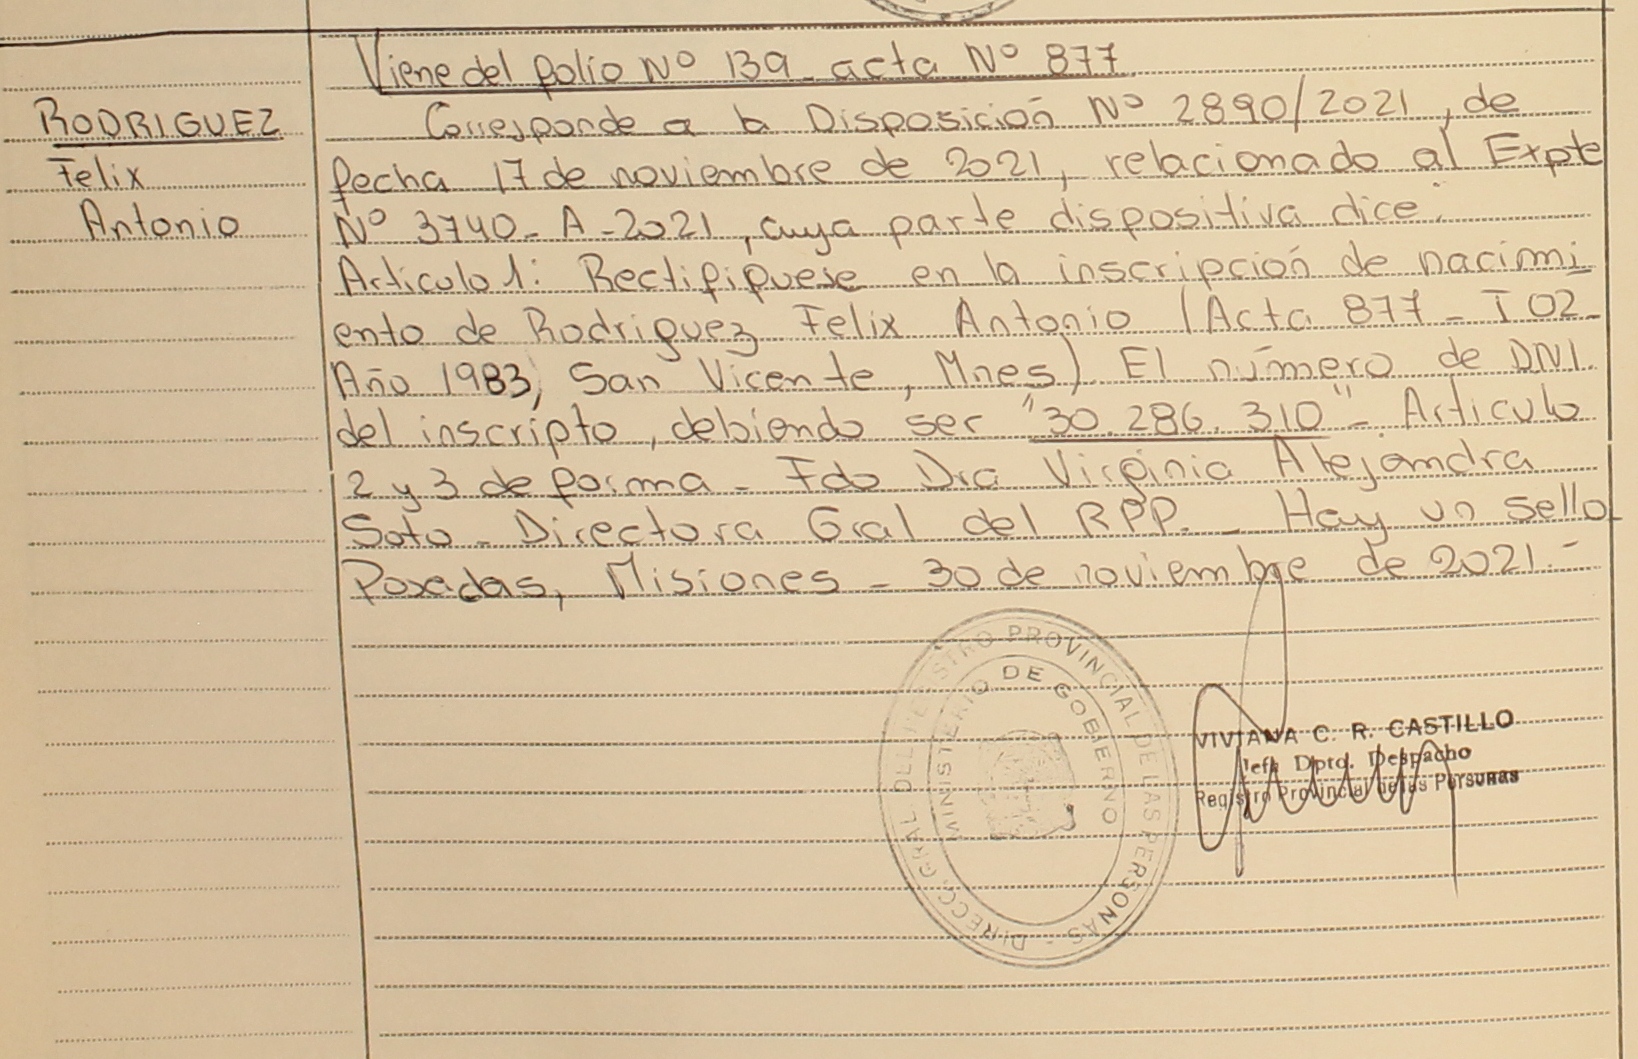 Viene del folio Nº 139 - acta Nº 877
RODRIGUEZ
Felix
Antonio
Corresponde a la Disposición Nº 2890/2021, de
fecha 17 de noviembre de 2021, relacionado al Expte
Nº 3740 - A - 2021, cuya parte dispositiva dice:
Artículo 1: Rectifiquese en la inscripción de nacimi
ento de Rodriguez Felix Antonio (Acta 877 - T 02 -
Año 1983, San Vicente, Mnes) El número de DNI.
del inscripto, debiendo ser "30.286.310" - Articulo
2 y 3 de forma - Fdo Dra Virginia Alejandra
Soto - Directora Gral del RPP. - Hay un sello
Posadas, Misiones - 30 de noviembre de 2021.-
DIRECC. GRAL. DEL REGISTRO PROVINCIAL DE LAS PERSONAS -
MINISTERIO DE GOBIERNO
VIVIANA C. R. CASTILLO
Jefa Dpto. Despacho
Registro Provincial de las Personas